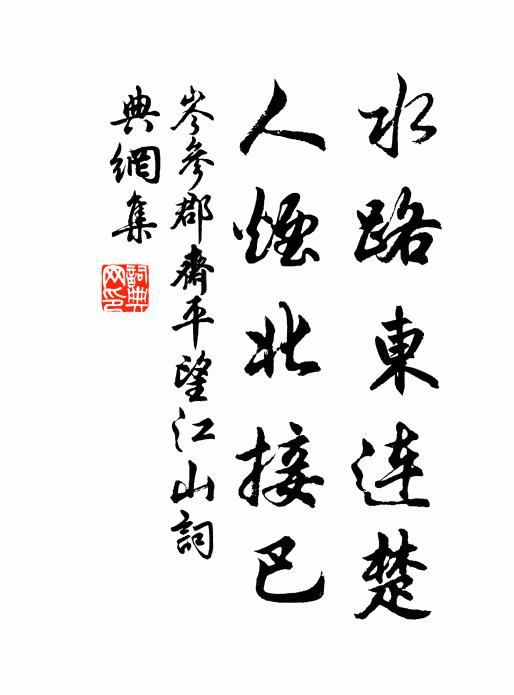 水路東连楚
人煙北接巴
岑參郡齋平望江山詞
典網集
詞典網印